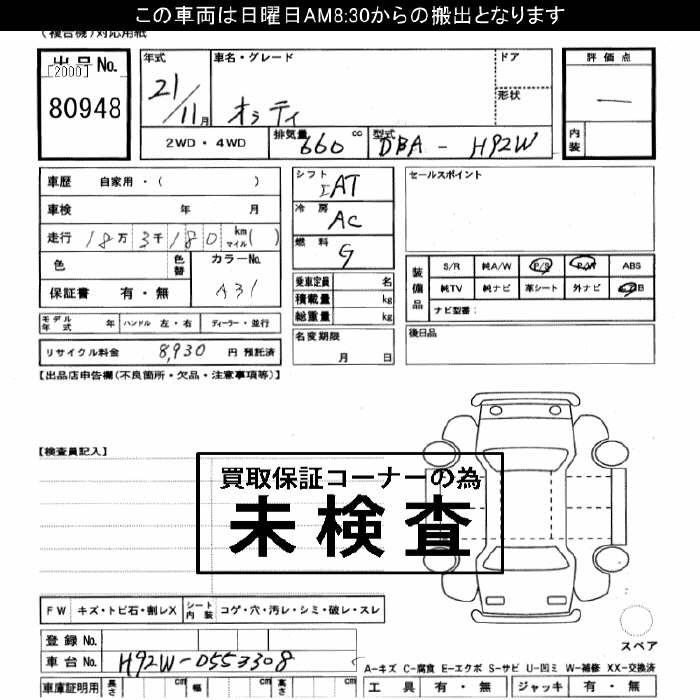 この車両は日曜日AM8:30からの搬出となります
(複合機)対応用紙
出品No.
[2000]
80948
年式
21/11月
車名・グレード
オッティ
ドア
形状
評価点
—
内装
2WD・4WD
排気量 660 cc
型式 DBA-H92W
車歴 自家用・( )
車検 年 月
走行 18万3千180 km マイル( )
色
色替
カラーNo.
A31
保証書 有・無
シフト
IAT
冷房
AC
燃料
G
乗車定員 名
積載量 kg
総重量 kg
セールスポイント
装備品
S/R 純A/W P/S P/W ABS
純TV 純ナビ 革シート 外ナビ エアB
ナビ型番:
モデル年式 年 ハンドル 左・右 ディーラー・並行
名変期限
月 日
後日品
リサイクル料金 8,930 円 預託済
【出品店申告欄(不良箇所・欠品・注意事項等)】
【検査員記入】
買取保証コーナーの為
未検査
FW キズ・トビ石・割レX シート内装 コゲ・穴・汚レ・シミ・破レ・スレ
スペア
登録No.
車台No. H92W-0553308
A-キズ C-腐食 E-エクボ S-サビ U-凹ミ W-補修 XX-交換済
車庫証明用 長さ cm 幅 cm 高さ cm
工具 有・無 ジャッキ 有・無